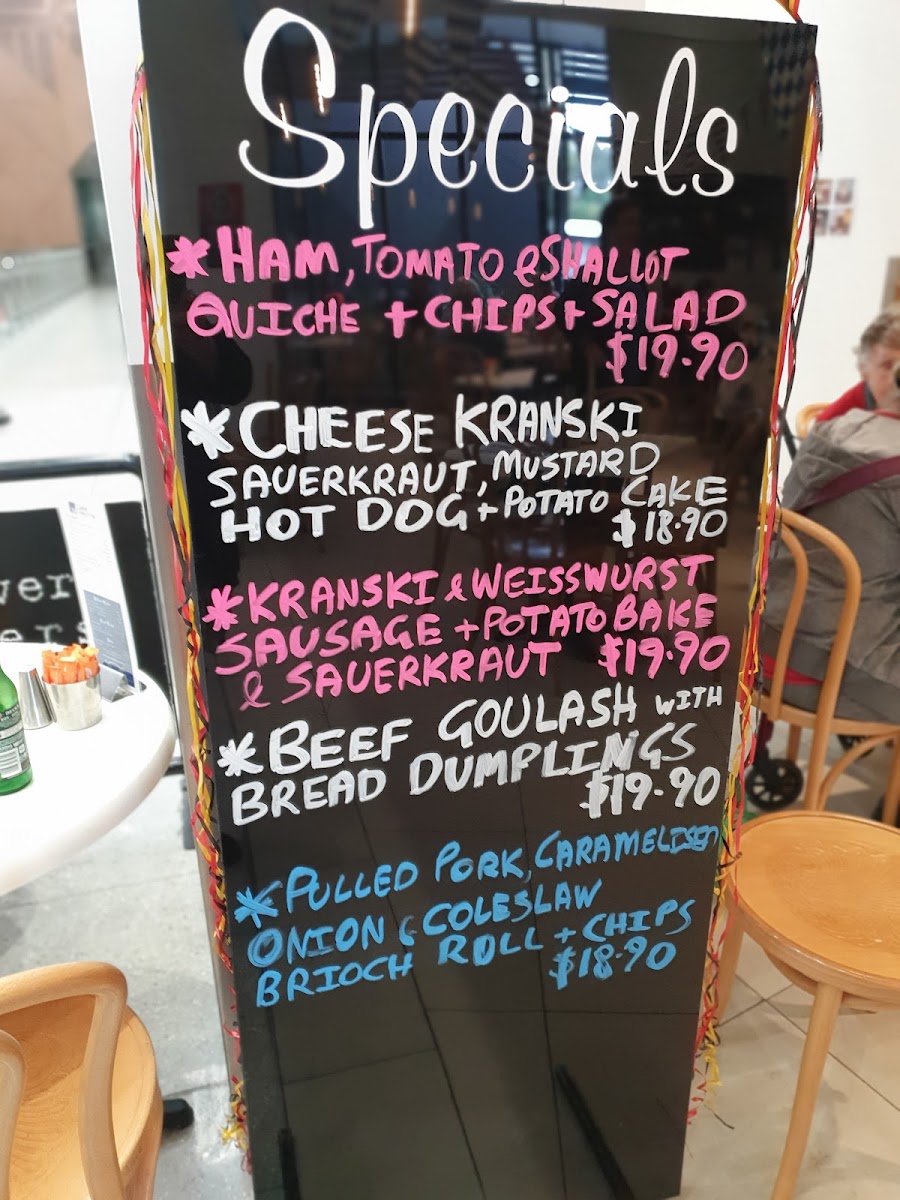 Specials
*HAM, TOMATO & SHALLOT
QUICHE + CHIPS + SALAD
$19.90
*CHEESE KRANSKI
SAUERKRAUT, MUSTARD
HOT DOG + POTATO CAKE
$18.90
*KRANSKI & WEISSWURST
SAUSAGE + POTATO BAKE
& SAUERKRAUT $19.90
*BEEF GOULASH WITH
BREAD DUMPLINGS
$19.90
*PULLED PORK, CARAMELISED
ONION & COLESLAW
BRIOCH ROLL + CHIPS
$18.90